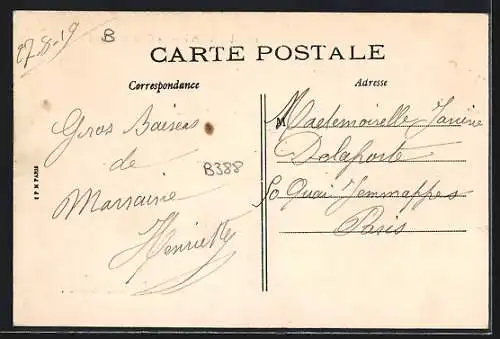 27-8-19
B
CARTE POSTALE
Correspondance
Adresse
Gros Baisers
de
Marraine
Henriette
B388
M
Mademoiselle Janine
Delaporte
50 Quai Jemmappes
Paris